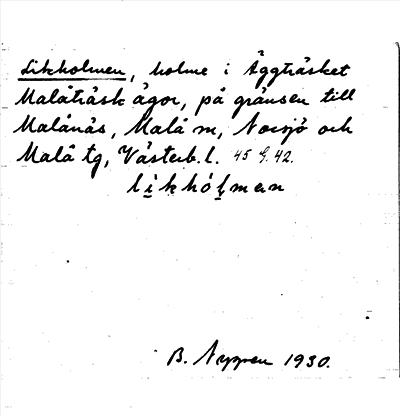 Likholmen, holme i Äggträsket
Malåträsk ägor, på gränsen till
Malånäs, Malå sn, Norsjö och
Malå tg, Västerb. l. 45 G. 42.
likhólman
B. Nyman 1930.